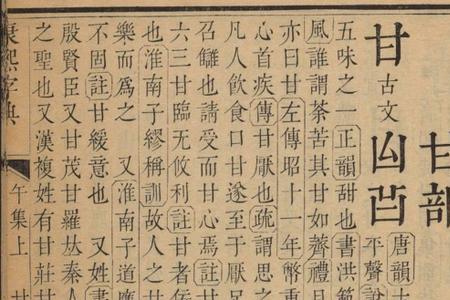 甘部
甘 古文
唐韻
平聲說
五味之一正韻甜也書洪範
風誰謂荼苦其甘如薺禮
亦曰甘左傳昭十一年幣重
心首疾傳甘厭也疏謂思之
凡人飲食口甘遂至于厭足
召讎也請受而甘心焉註
六三甘臨无攸利註甘者佞
也淮南子繆稱訓故人之甘
樂而爲之 又淮南子道應
不固註甘緩意也 又姓書
殷賢臣又甘茂甘羅丛秦人
之聖也又漢複姓有甘莊甘
康熙字典 午集上 甘